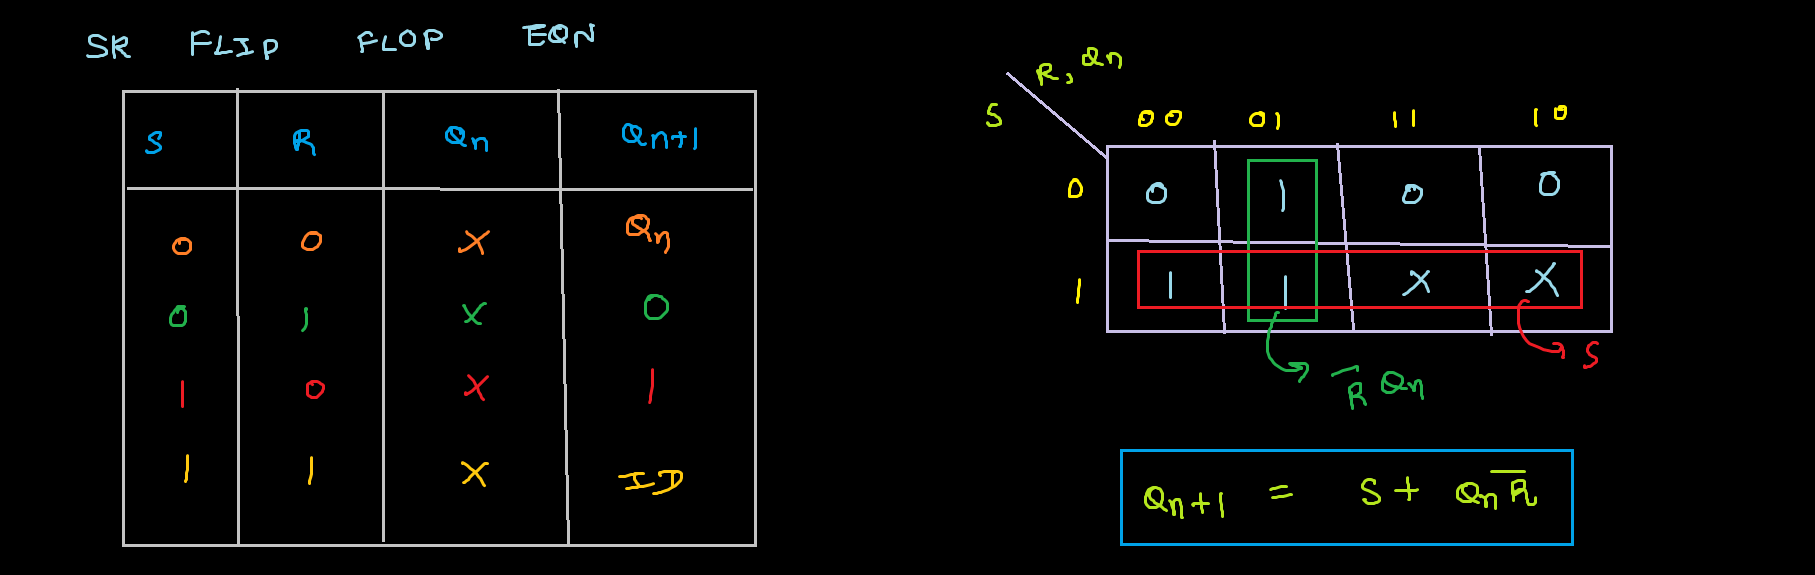 SR FLIP FLOP EQN
S R Qn Qn+1
0 0 X Qn
0 1 X 0
1 0 X 1
1 1 X ID
R, Qn
S
00 01 11 10
0 0 1 0 0
1 1 1 X X
S
R̅ Qn
Qn+1 = S + QnR̅